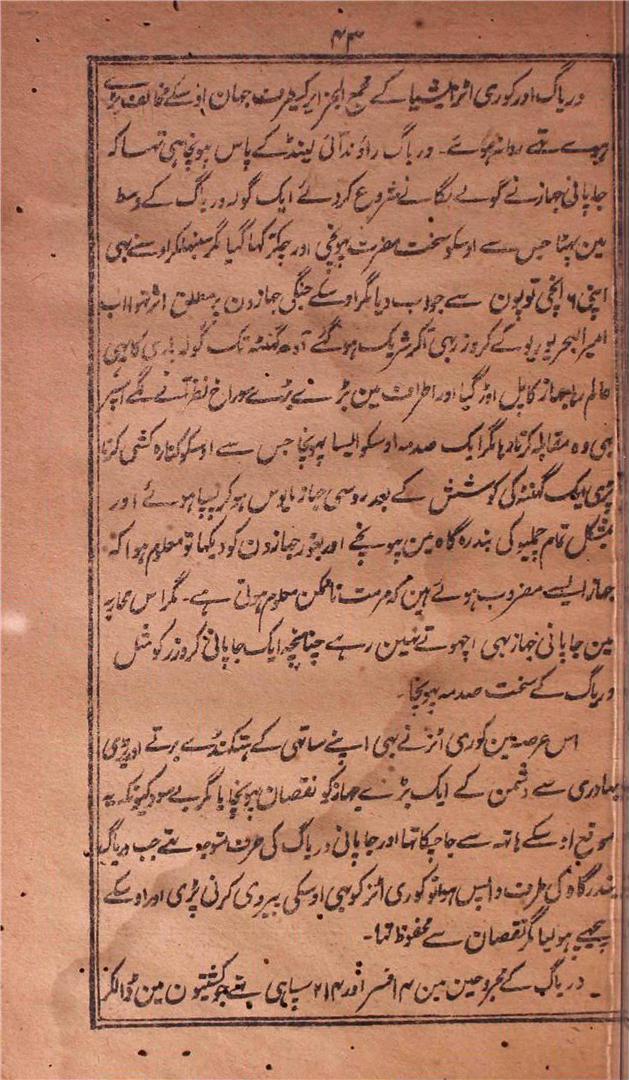 ۴۳
دریاگ اور کوری اٹز ایشیا کے مجمع الجزایر کیطرف جہان اوسکے مخالف پڑے
ہوے تھے روانہ ہوئے۔ دریاگ راؤنڈ آئی لینڈ کے پاس پہونچا ہی تھا کہ
جاپانی جہاز نے گولے لگانے شروع کردئے ایک گولہ دریاگ کے وسط
مین پھٹا جس سے اوسکو سخت مضرت پہونچی اور چکر کھا گیا مگر سنبھلکر اوسنے بھی
اپنی ۶ انچی توپون سے جواب دیا مگر اوسکے جنگی جہازون پر مطلق اثر نہوا اب
امیر البحر یوریو کے کروزر بھی آکر شریک ہوگئے آدھ گھنٹہ تک گولہ باری کا یہی
عالم رہا جہاز کا پل اوڑ گیا اور اطراف مین بڑے بڑے سوراخ نظر آنے لگے اسپر
بھی وہ مقابلہ کرتا رہا مگر ایک صدمہ اوسکو ایسا پہونچا جس سے اوسکو کنارہ کشی کرنا
پڑی ایک گھنٹہ کی کوشش کے بعد روسی جہاز مایوس ہوکر پسپا ہوئے اور
بمشکل تمام چملپو کی بندرگاہ مین پہونچے اور بغور جہازون کو دیکھا تو معلوم ہوا کہ
جہاز ایسے مضروب ہوئے ہین کہ مرمت ناممکن معلوم ہوتی ہے۔ مگر اس محاربہ
مین جاپانی جہاز بھی اچھوتے نہین رہے چنانچہ ایک جاپانی کروزر کو مثل
دریاگ کے سخت صدمہ پہونچا۔
اس عرصہ مین کوری اٹز نے بھی اپنے ساتھی کے ہتکنڈے برتے اور بڑی
بہادری سے دشمن کے ایک بڑے جہاز کو نقصان پہونچایا مگر بے سود کیونکہ یہ
موقع اوسکے ہاتھ سے جاچکا تھا اور جاپانی دریاگ کی طرف متوجہ تھے جب دریاگ
بندرگاہ کی طرف واپس ہوا تو کوری اٹز کو بھی اوسکی پیروی کرنی پڑی اور اوسکے
پیچھے ہولیا مگر نقصان سے محفوظ تھا۔
دریاگ کے مجروحین مین ۴ افسر اور ۲۱۴ سپاہی تھے جو کشتیون مین ڈالکر